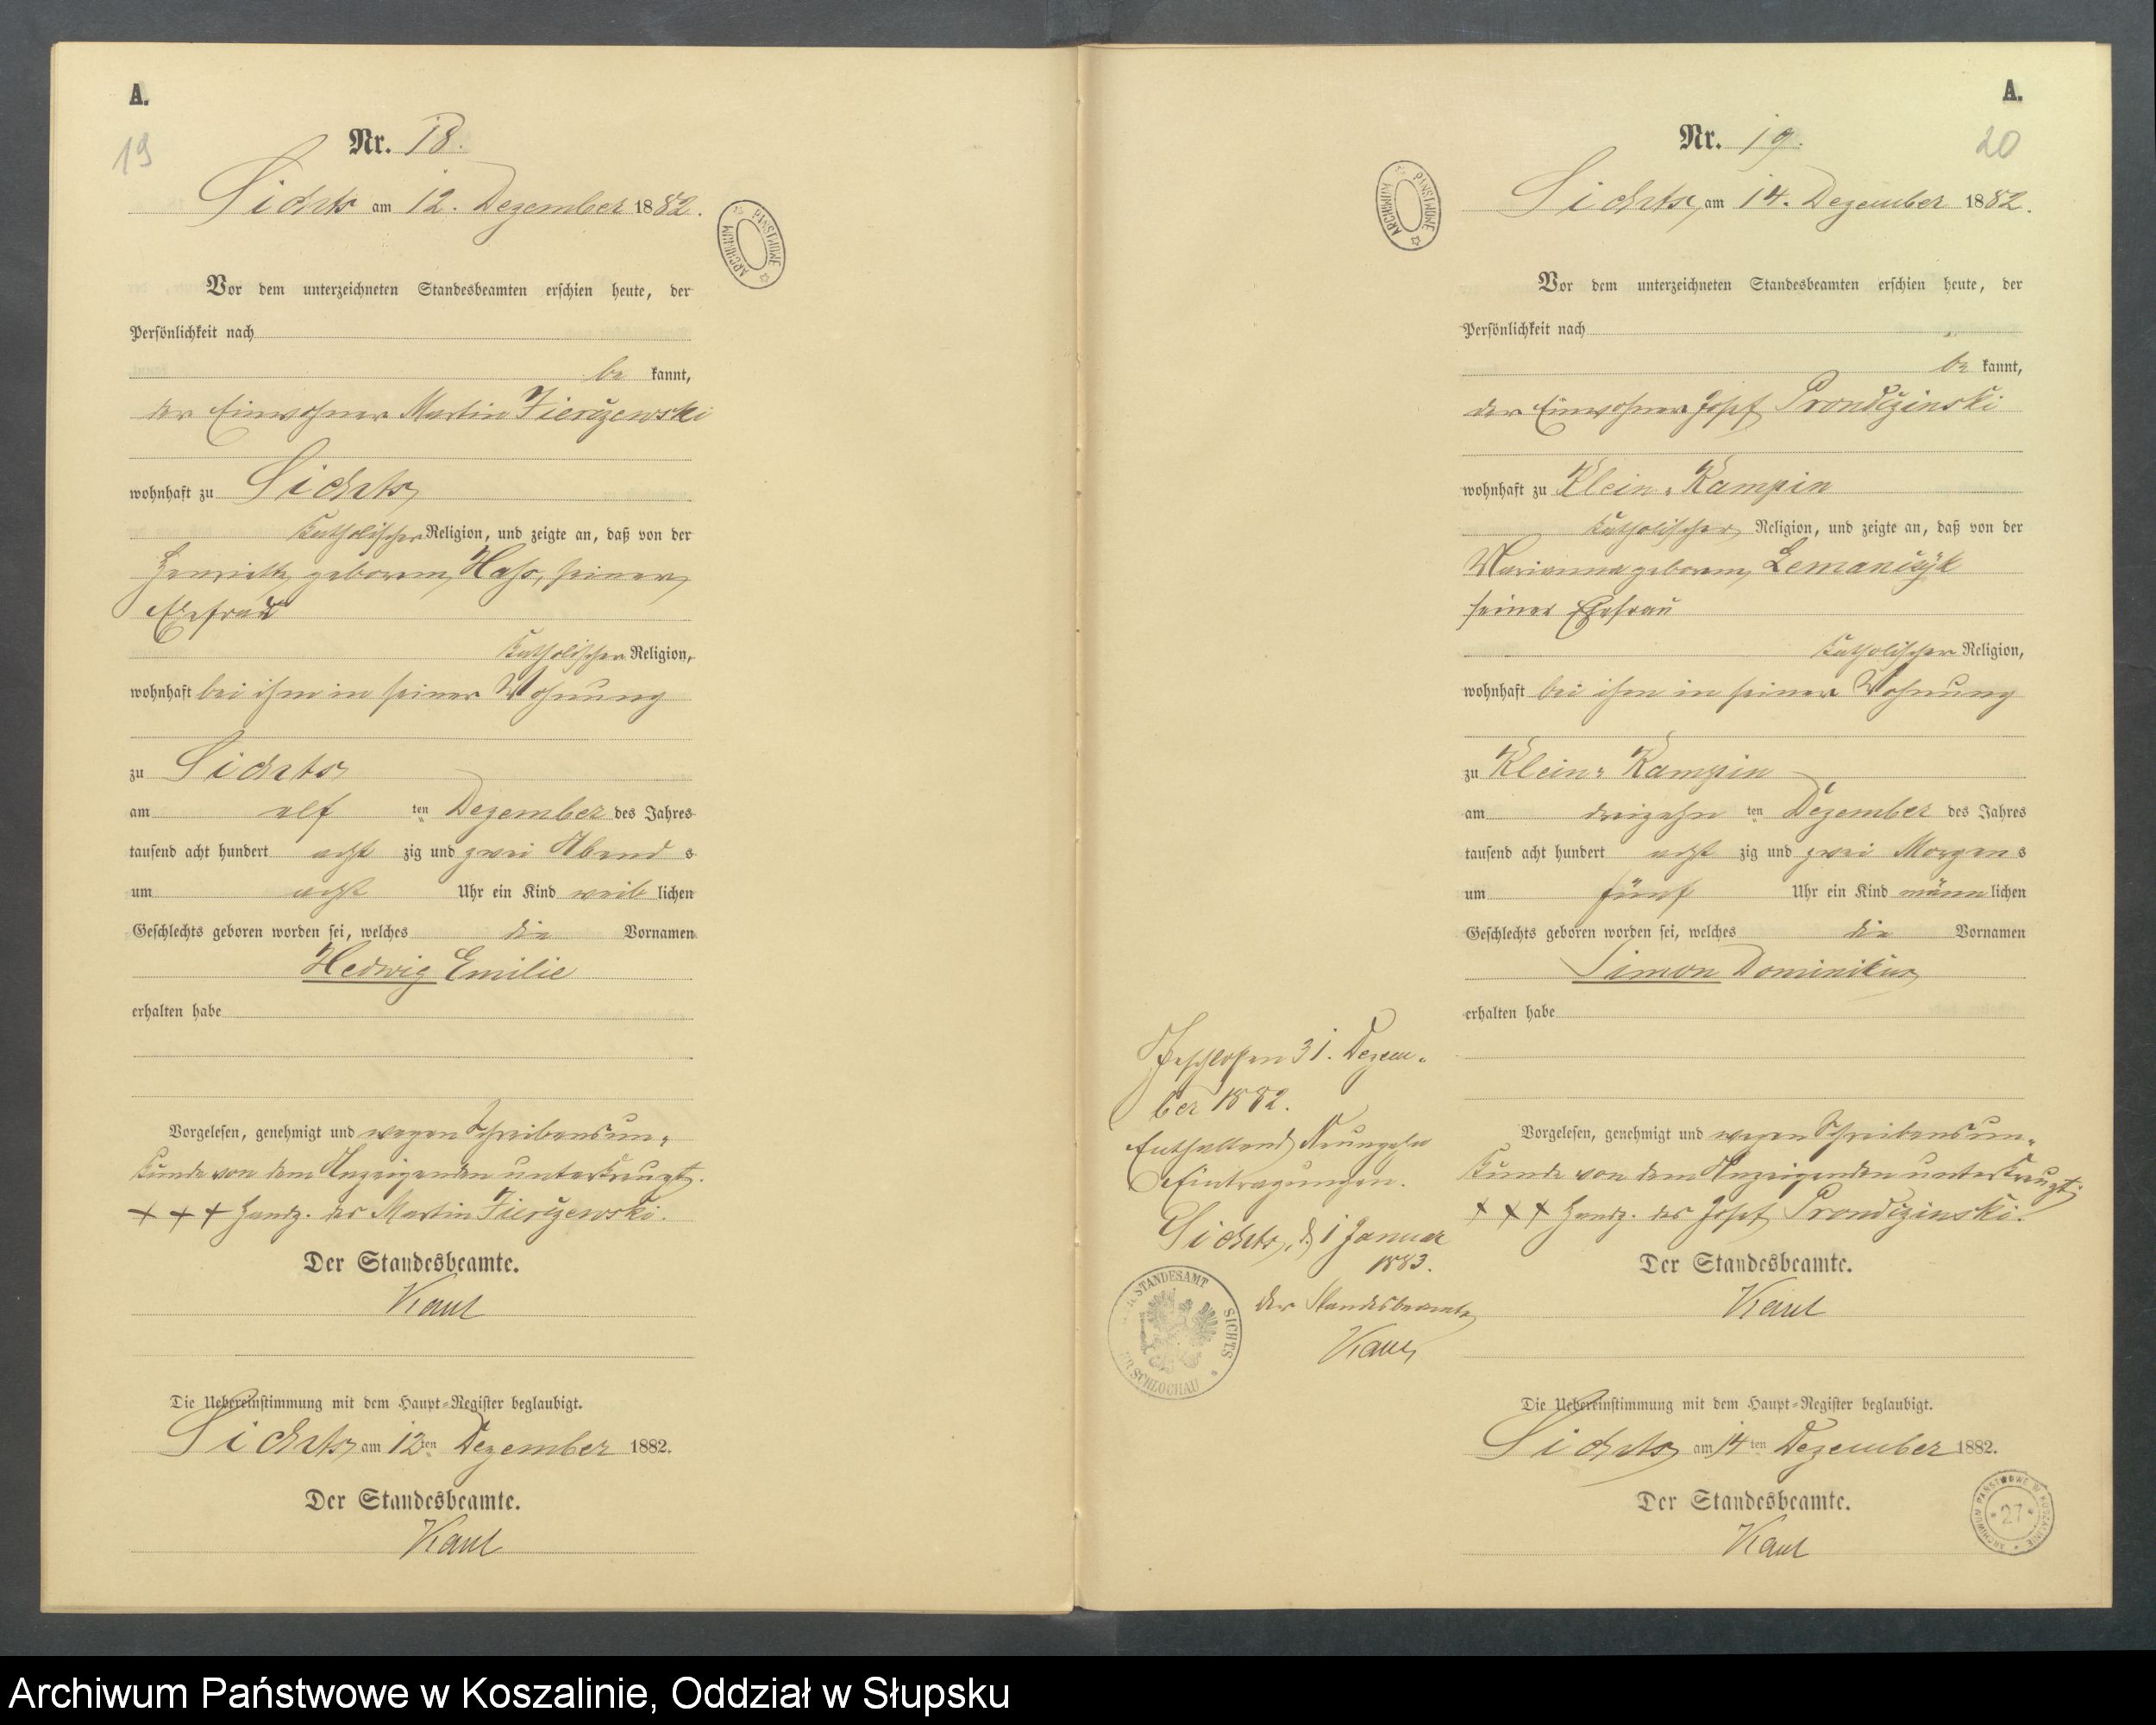 A.
19
Nr. 18.
Sichts am 12. Dezember 1882.
ARCHIWUM PAŃSTWOWE
Vor dem unterzeichneten Standesbeamten erschien heute, der
Persönlichkeit nach
be kannt,
der Einwohner Martin Zierczewski
wohnhaft zu Sichts
katholischer Religion, und zeigte an, daß von der
geborene Hass, seiner
Ehefrau
katholischer Religion,
wohnhaft bei ihm in seiner Wohnung
zu Sichts
am elf ten Dezember des Jahres
tausend acht hundert acht zig und zwei Abend s
um acht Uhr ein Kind weib lichen
Geschlechts geboren worden sei, welches die Vornamen
Hedwig Emilie
erhalten habe
Vorgelesen, genehmigt und wegen Schreibensun-
kunde von dem Anzeigenden unterkreuzt.
+ + + Handz. des Martin Zierczewski.
Der Standesbeamte.
Kaul
Die Uebereinstimmung mit dem Haupt-Register beglaubigt.
Sichts am 12ten Dezember 1882.
Der Standesbeamte.
Kaul
A.
20
Nr. 19.
Sichts, am 14. Dezember 1882.
ARCHIWUM PAŃSTWOWE
Vor dem unterzeichneten Standesbeamten erschien heute, der
Persönlichkeit nach
be kannt,
der Einwohner Josef Prondczinski
wohnhaft zu Klein-Kampin
katholischer Religion, und zeigte an, daß von der
Marianna geborene Lemanczyk
seiner Ehefrau
katholischer Religion,
wohnhaft bei ihm in seiner Wohnung
zu Klein-Kampin
am dreizehn ten Dezember des Jahres
tausend acht hundert acht zig und zwei Morgen s
um fünf Uhr ein Kind männ lichen
Geschlechts geboren worden sei, welches die Vornamen
Simon Dominikus
erhalten habe
Vorgelesen, genehmigt und wegen Schreibensun-
kunde von dem Anzeigenden unterkreuzt.
+ + + Handz. des Josef Prondczinski.
Der Standesbeamte.
Kaul
Die Uebereinstimmung mit dem Haupt-Register beglaubigt.
Sichts am 14ten Dezember 1882.
Der Standesbeamte.
Kaul
Geschlossen 31. Dezem-
ber 1882.
Enthaltend Neunzehn
Eintragungen.
Sichts, d. 1 Januar
1883.
der Standesbeamte
Kaul
STANDESAMT SICHTS
KR. SCHLOCHAU
ARCHIWUM PAŃSTWOWE W KOSZALINIE
27
Archiwum Państwowe w Koszalinie, Oddział w Słupsku